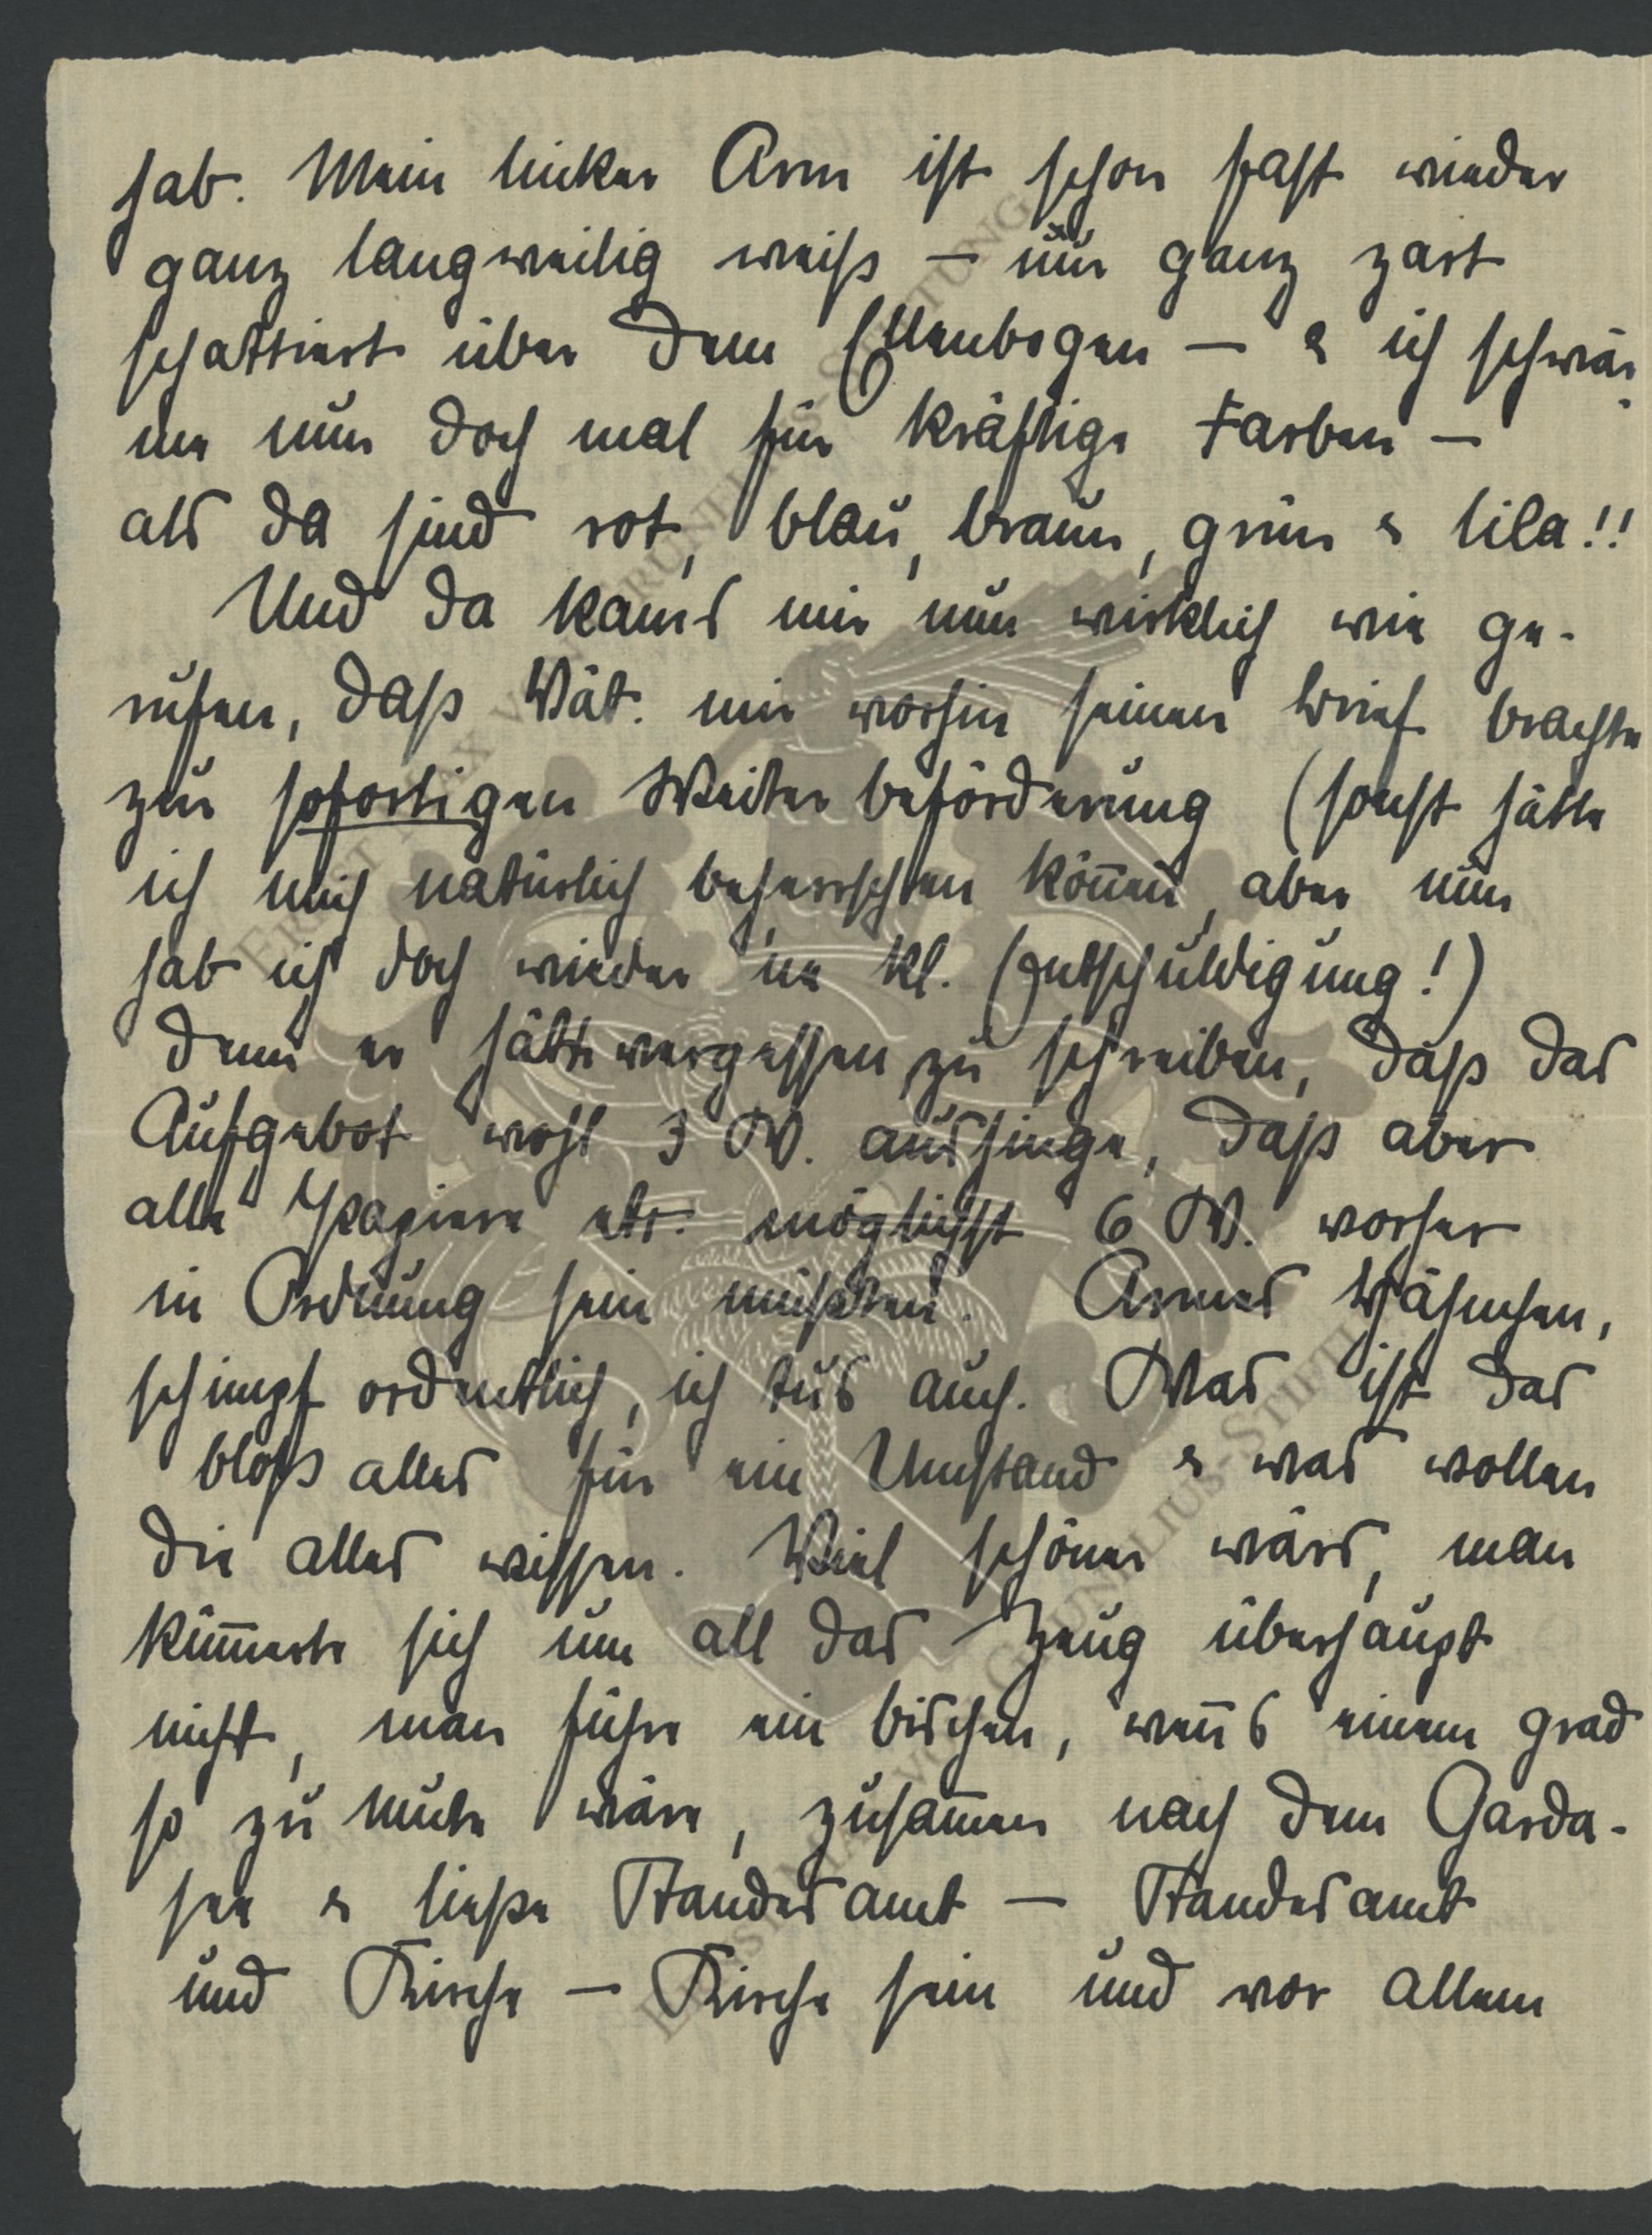 hab. Mein linker Arm ist schon fast wieder
ganz langweilig weiß – nur ganz zart
schattiert über dem Ellenbogen – & ich schwär-
me nun doch mal für kräftige Farben –
als da sind rot, blau, braun, grün & lila!!
Und da kams mir nun wirklich wie ge-
rufen, daß Vät. mir vorhin seinen Brief brachte
zur sofortigen Weiterbeförderung (sonst hätte
ich mich natürlich beherrschen können, aber nun
hab ich doch wieder 'ne kl. Entschuldigung!)
denn er hätte vergessen zu schreiben, daß das
Aufgebot wohl 3 W. aushinge, daß aber
alle Papiere etc. möglichst 6 W. vorher
in Ordnung sein müßten. Armes
schimpf ordentlich, ich tus auch. Was ist das
bloß alles für ein Umstand & was wollen
die alles wissen. Viel schöner wärs, man
kümmerte sich um all das Zeug überhaupt
nicht, man führe ein bischen, wenns einem grad
so zu mute wäre, zusammen nach dem Garda-
see & ließe Standesamt – Standesamt
und Kirche – Kirche sein und vor allem
ERNST MAX VON GRUNELIUS-STIFTUNG
ERNST MAX VON GRUNELIUS-STIFTU